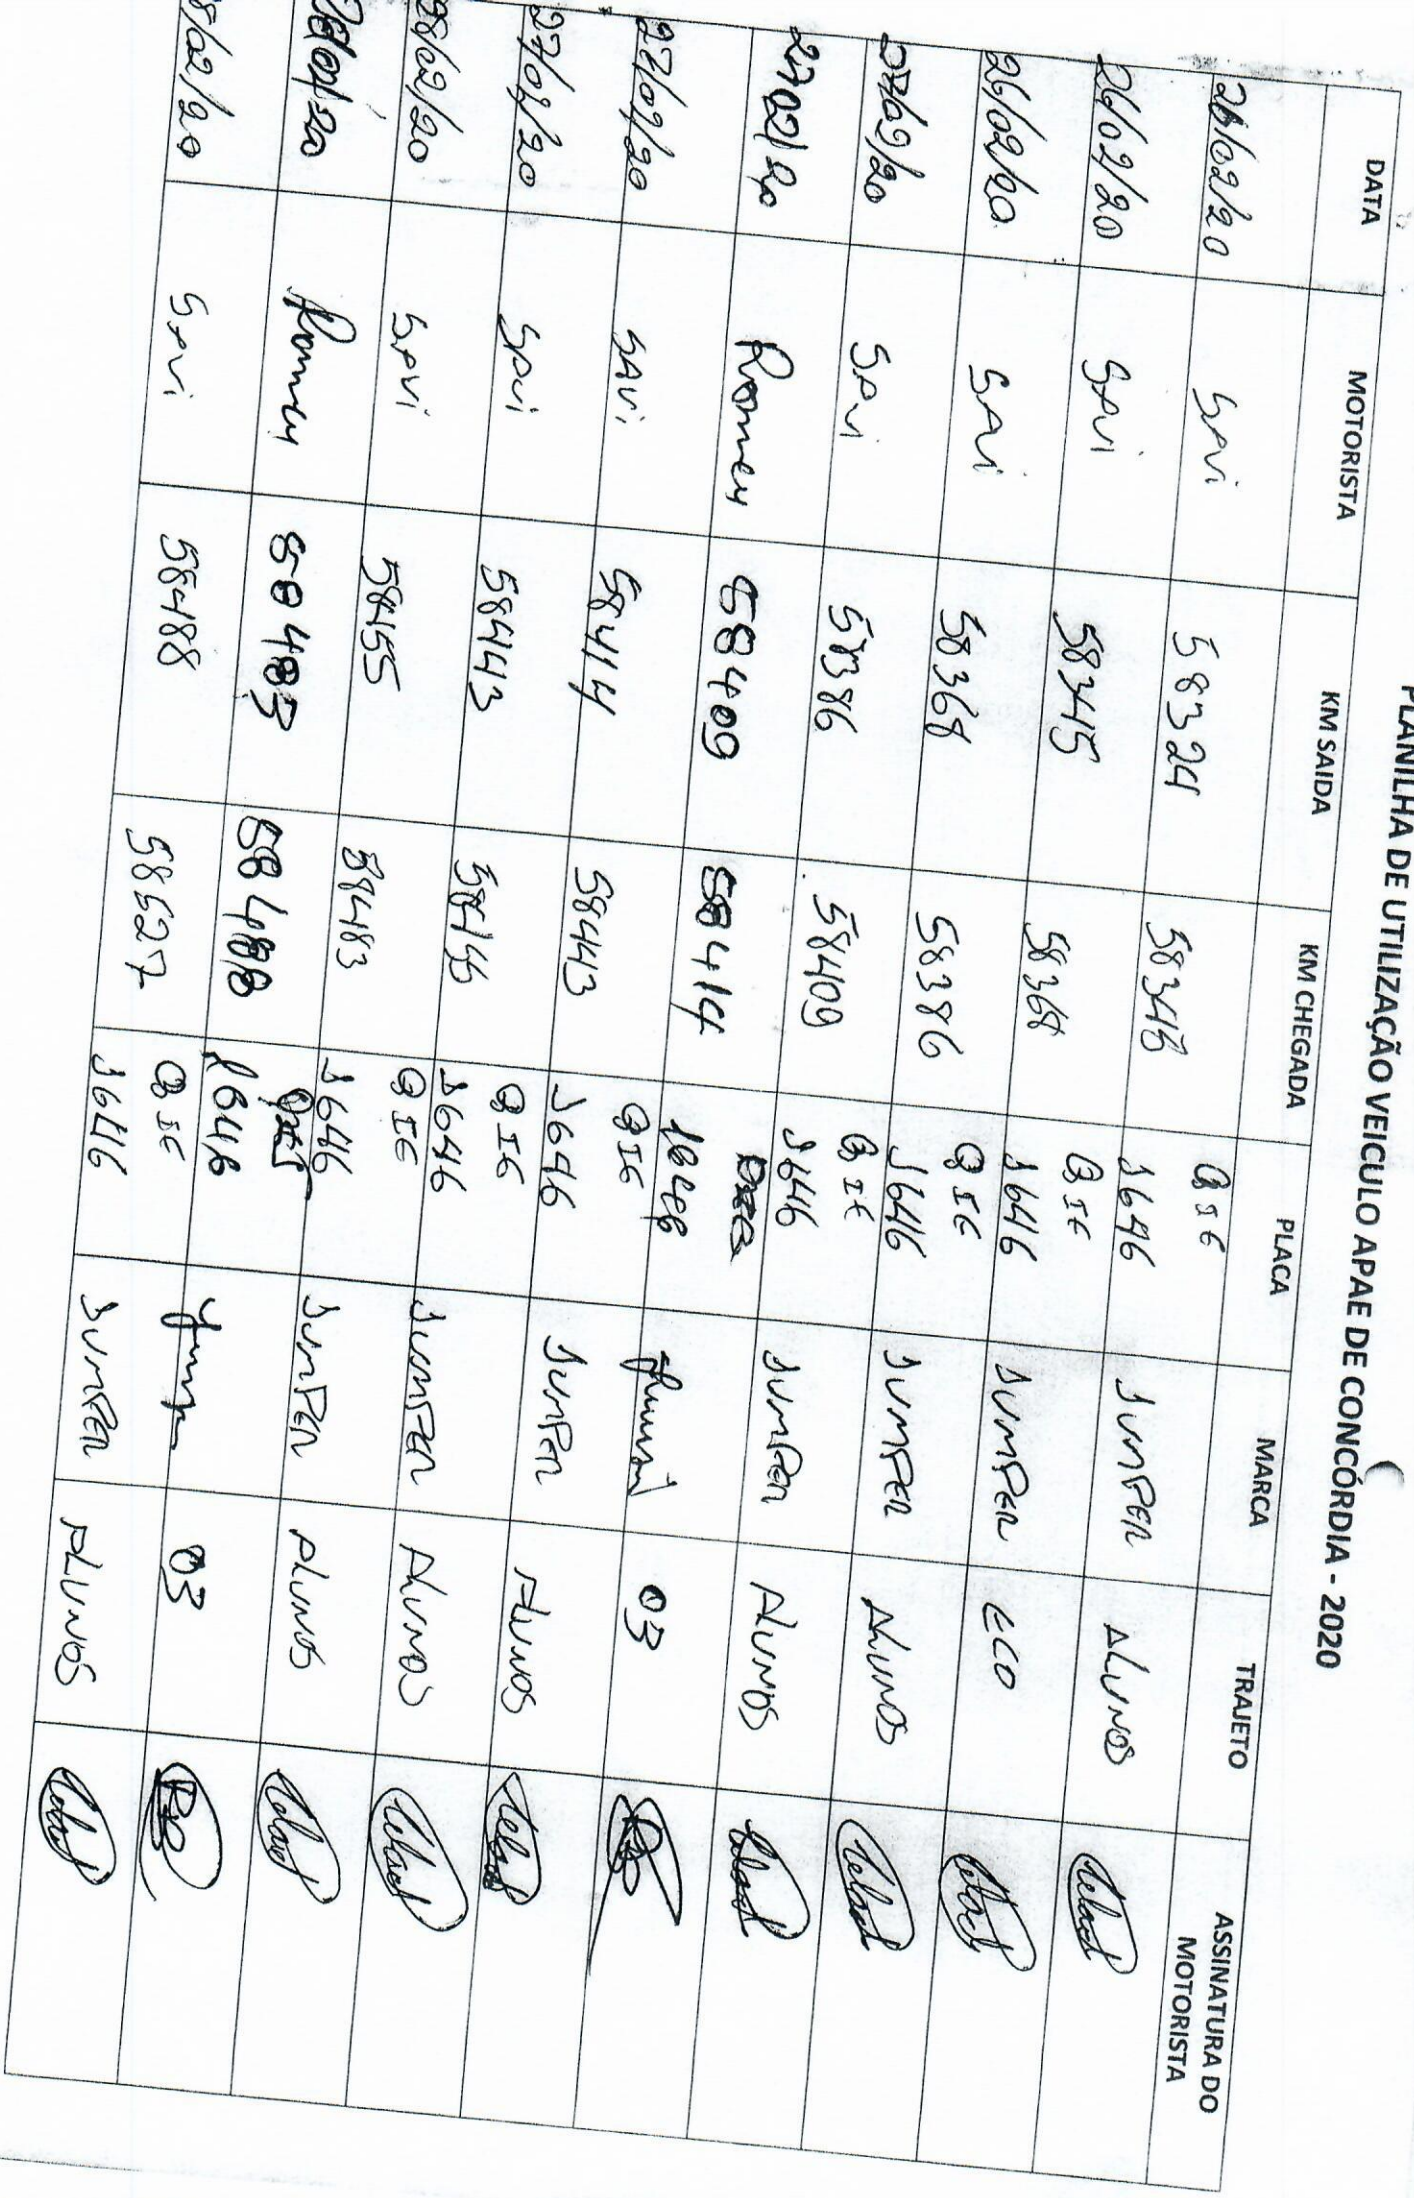 PLANILHA DE UTILIZAÇÃO VEICULO APAE DE CONCÓRDIA - 2020
DATA MOTORISTA KM SAIDA KM CHEGADA PLACA MARCA TRAJETO ASSINATURA DO MOTORISTA
26/02/20 SAVI 58324 58345 QIE 1646 JUMPER ALUNOS
26/02/20 SAVI 58345 58368 QIE 1646 JUMPER ECO
26/02/20 SAVI 58368 58386 QIE 1646 JUMPER ALUNOS
27/02/20 SAVI 58386 58409 QIE 1646 JUMPER ALUNOS
27/02/20 Romeu 58409 58414 1646 03
27/02/20 SAVI 58414 58443 QIE 1646 JUMPER ALUNOS
27/02/20 SAVI 58443 58455 QIE 1646 JUMPER ALUNOS
28/02/20 SAVI 58455 58483 QIE 1646 JUMPER ALUNOS
Romeu 58483 58488 1646 03
8/02/20 SAVI 58488 58627 QIE 1646 JUMPER ALUNOS